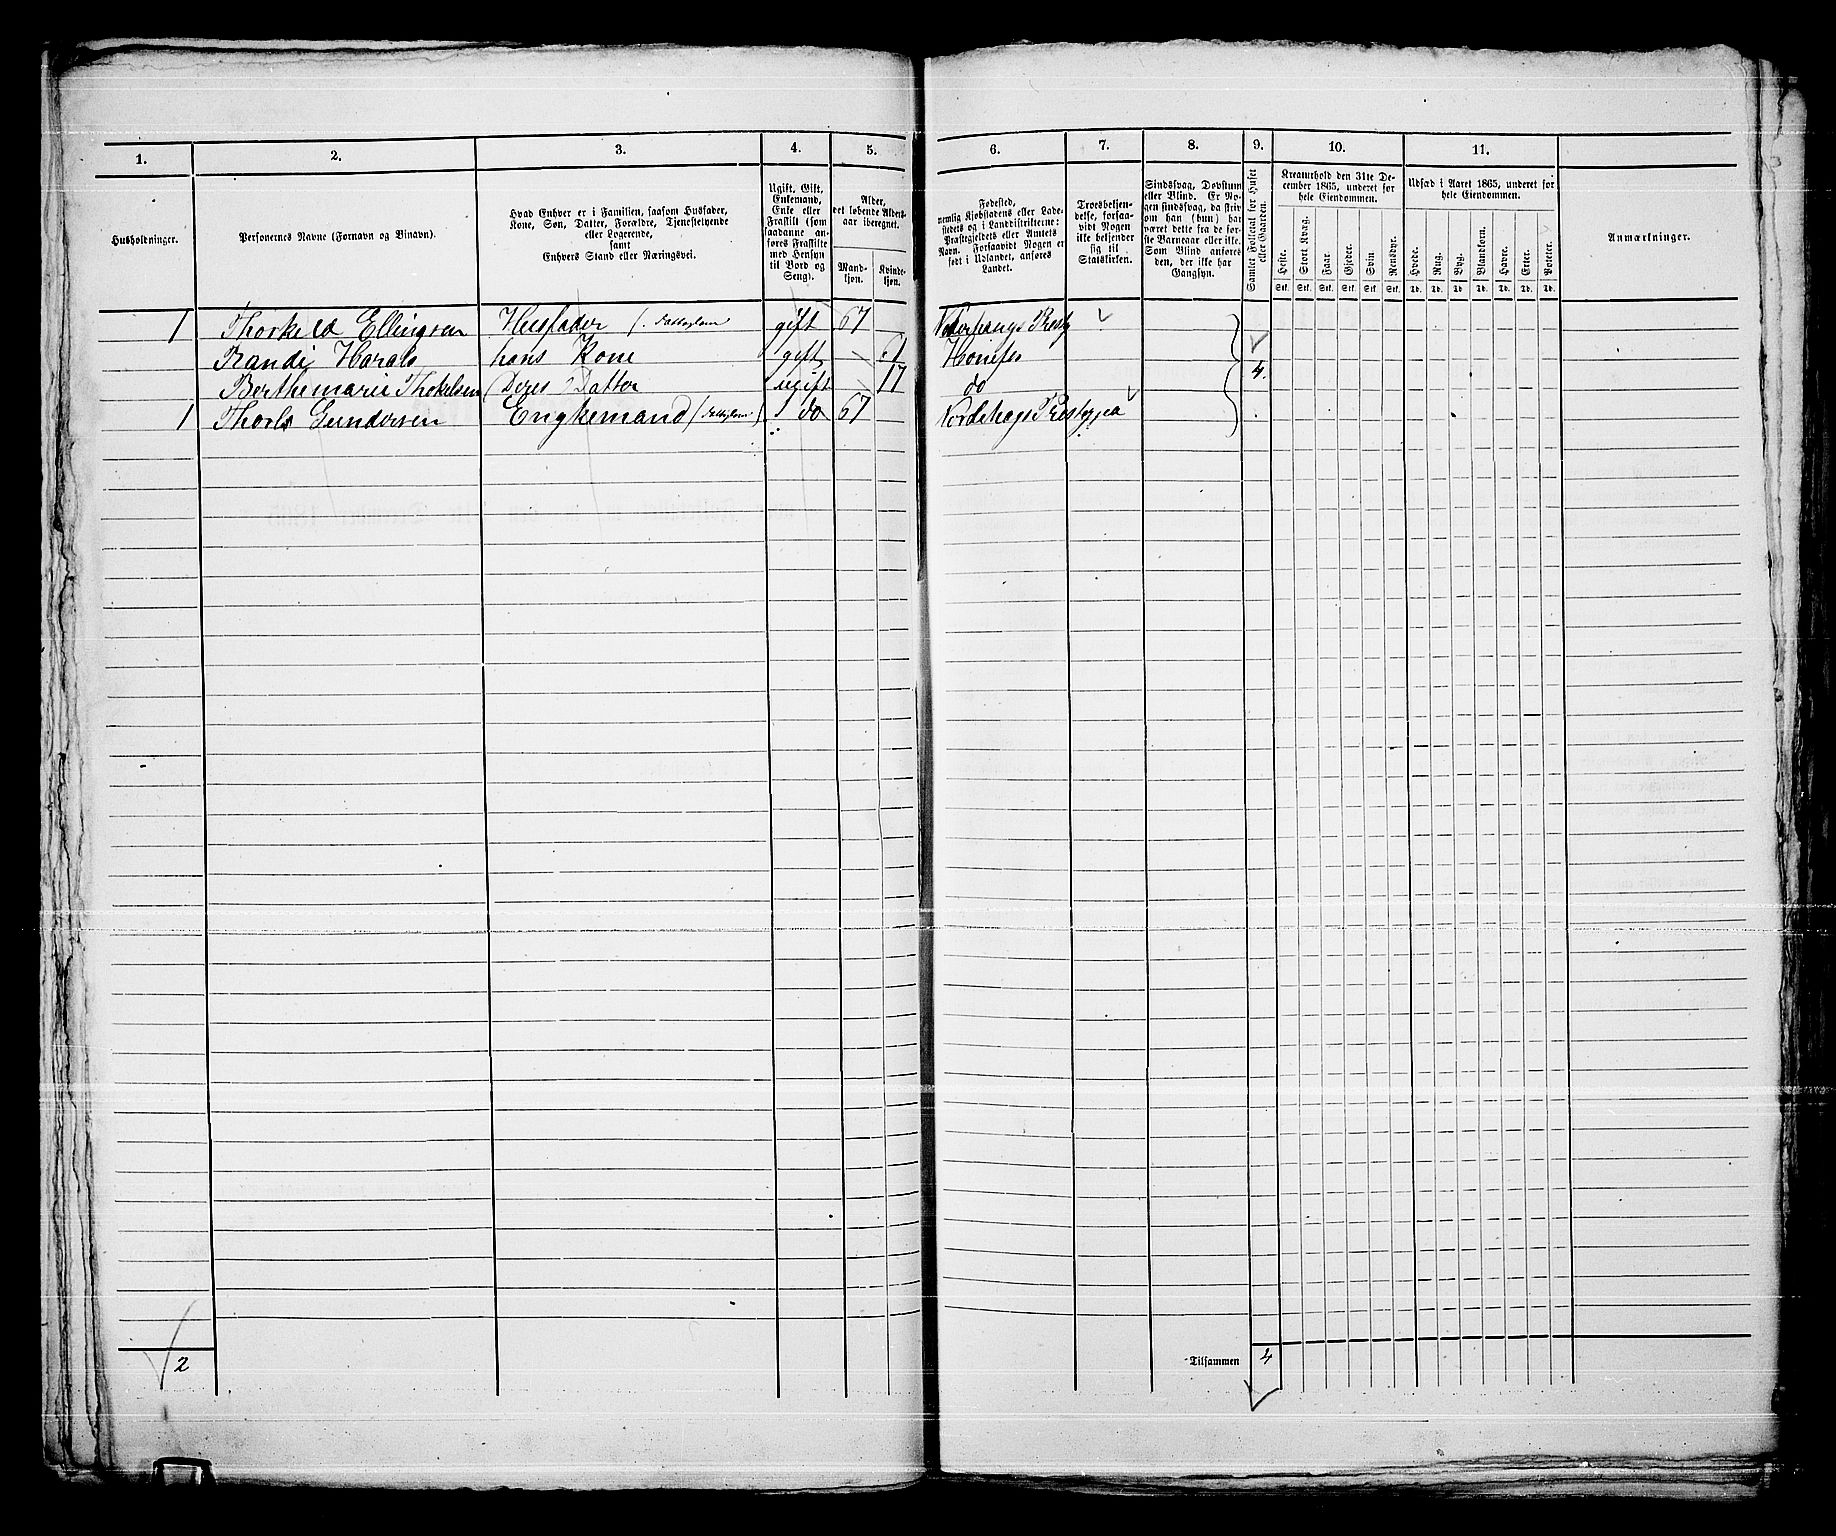 1. 2. 3. 4. 5. 6. 7. 8. 9. 10. 11.
Husholdninger.
Personernes Navne (Fornavn og Binavn).
Hvad Enhver er i Familien, saasom Husfader,
Kone, Søn, Datter, Forældre, Tjenestetyende
eller Logerende,
samt
Enhvers Stand eller Næringsvei.
Ugift, Gift,
Enkemand,
Enke eller
Fraskilt (som
saadanne an-
føres Fraskilte
med Hensyn
til Bord og
Seng).
Alder,
det løbende Alders-
aar iberegnet.
Mand-
kjøn.
Kvinde-
kjøn.
Fødested,
nemlig Kjøbstadens eller Lade-
stedets og i Landdistrikterne:
Præstegjeldets eller Annexets
Navn. Forsaavidt Nogen er
født i Udlandet, anføres
Landet.
Troesbekjen-
delse, forsaa-
vidt Nogen
ikke bekjender
sig til
Statskirken.
Sindssvag, Døvstum
eller Blind. Er No-
gen sindssvag, da skriv
om han (hun) har
været dette fra de før-
ste Barneaar eller ikke.
Som Blind anføres
den, der ikke har
Gangsyn.
Samlet Folketal for Huset
eller Gaarden.
Kreaturhold den 31te De-
cember 1865, underet for
hele Eiendommen.
Heste. Stort Kvæg. Faar. Gjeder. Svin Rensdyr.
Stk. Stk. Stk. Stk. Stk. Stk.
Udsæd i Aaret 1865, underet for
hele Eiendommen.
Hvede. Rug. Byg. Blandkorn. Havre. Erter. Poteter.
Td. Td. Td. Td. Td. Td. Td.
Anmærkninger.
1 Thorkeld Ellingsen Husfader gift 67
Randi Harals hans Kone gift Hønefos
Berthemarie Thokelsen (Deres Datter ugift 17 do 4.
1 Gundersen do 67
2 Tilsammen 4